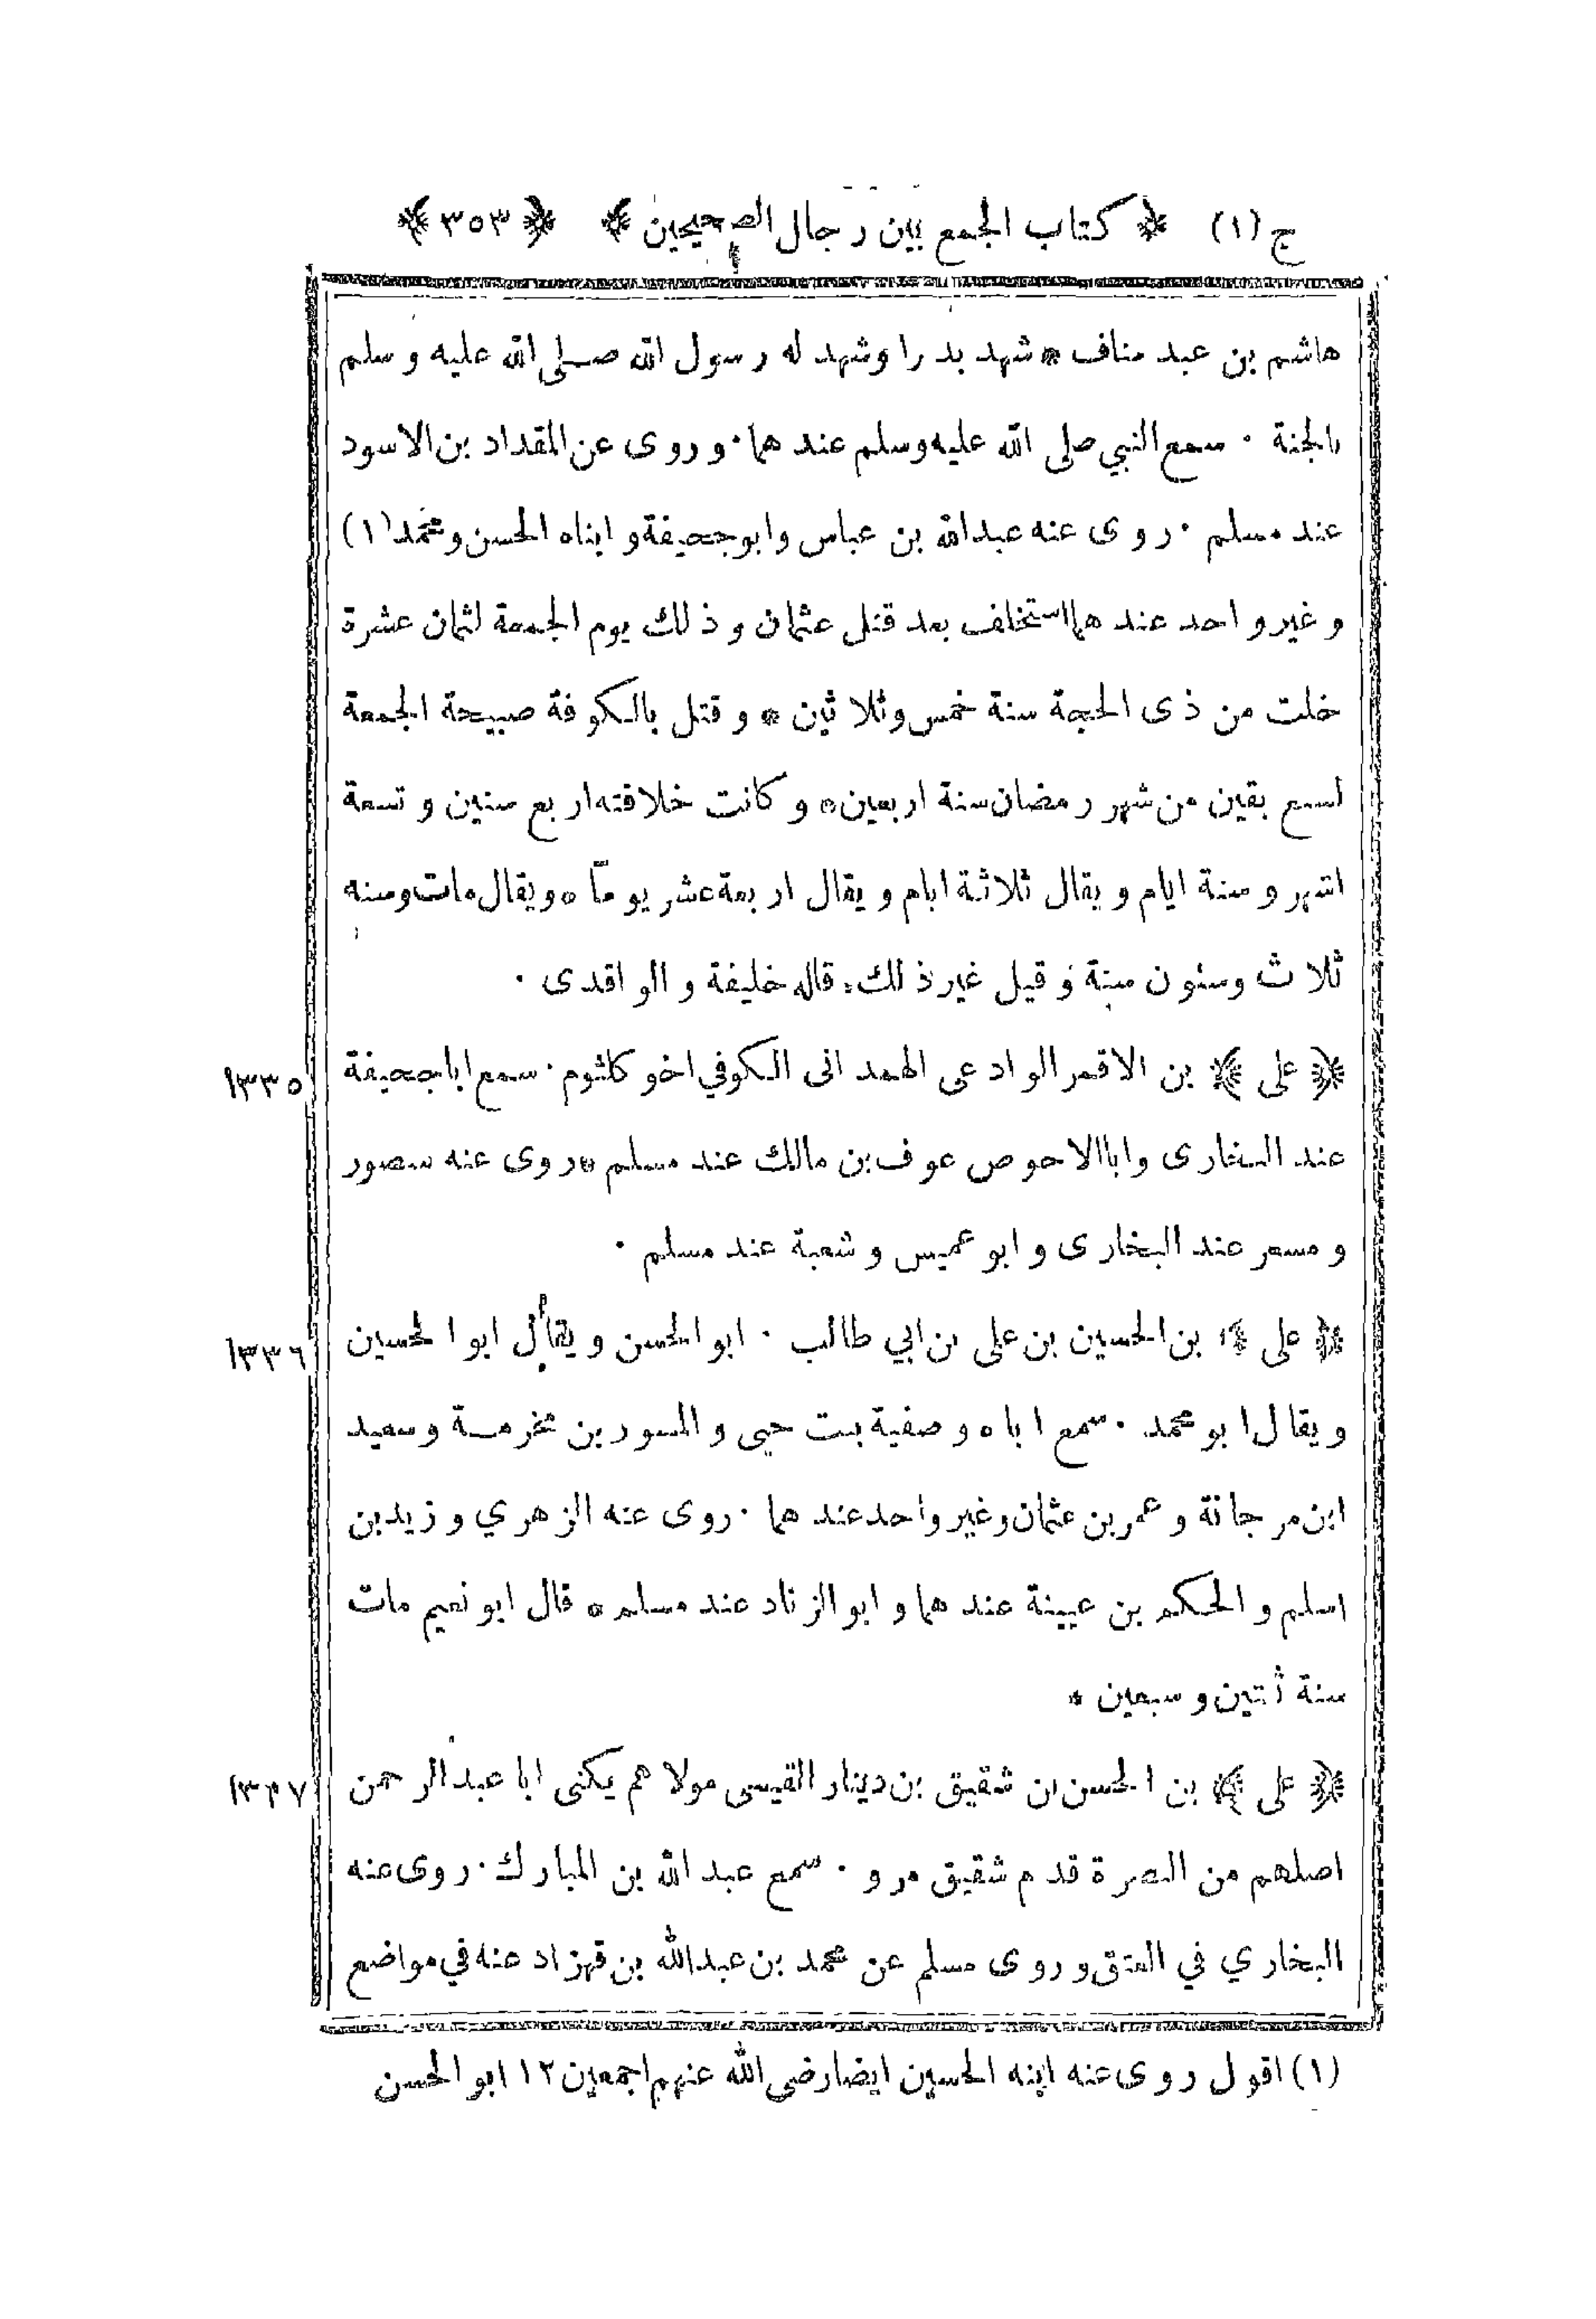 ج (١) ﴿ كتاب الجمع بين رجال الصحيحين ﴾ ﴿ ٣٥٣ ﴾
هاشم بن عبد مناف * شهد بدرا وشهد له رسول الله صلى الله عليه وسلم
بالجنة ٠ سمع النبي صلى الله عليه وسلم عندهما ٠ وروى عن المقداد بن الاسود
عند مسلم ٠ روى عنه عبدالله بن عباس وابو جحيفة و ابناه الحسن ومحمد (١)
وغير واحد عندهما استخلف بعد قتل عثمان وذلك يوم الجمعة لثمان عشرة
خلت من ذى الحجة سنة خمس وثلاثين * وقتل بالكوفة صبيحة الجمعة
لسبع بقين من شهر رمضان سنة اربعين * وكانت خلافته اربع سنين وتسعة
اشهر وستة ايام ويقال ثلاثة ايام ويقال اربعة عشر يوماً * ويقال مات وسنه
ثلاث وستون سنة وقيل غير ذلك * قاله خليفة والواقدى ٠
﴿ على ﴾ بن الاقمر الوادعى الهمدانى الكوفي اخو كلثوم ٠ سمع ابا جحيفة ١٣٣٥
عند البخارى وابا الاحوص عوف بن مالك عند مسلم * روى عنه منصور
ومسعر عند البخارى وابو عميس وشعبة عند مسلم ٠
﴿ على ﴾ بن الحسين بن على بن ابي طالب ٠ ابو الحسن ويقال ابو الحسين ١٣٣٦
ويقال ابو محمد ٠ سمع اباه وصفية بنت حيى والمسور بن مخرمة وسعيد
ابن مرجانة وعمر بن عثمان وغير واحد عندهما ٠ روى عنه الزهري وزيد بن
اسلم والحكم بن عيينة عندهما وابو الزناد عند مسلم * قال ابو نعيم مات
سنة ثنتين وسبعين *
﴿ على ﴾ بن الحسن بن شقيق بن دينار القيسى مولاهم يكنى ابا عبدالرحمن ١٣٣٧
اصلهم من البصرة قدم شقيق مرو ٠ سمع عبدالله بن المبارك ٠ روى عنه
البخاري في العتق وروى مسلم عن محمد بن عبدالله بن قهزاد عنه في مواضع
(١) اقول روى عنه ابنه الحسين ايضا رضى الله عنهم اجمعين ١٢ ابو الحسن